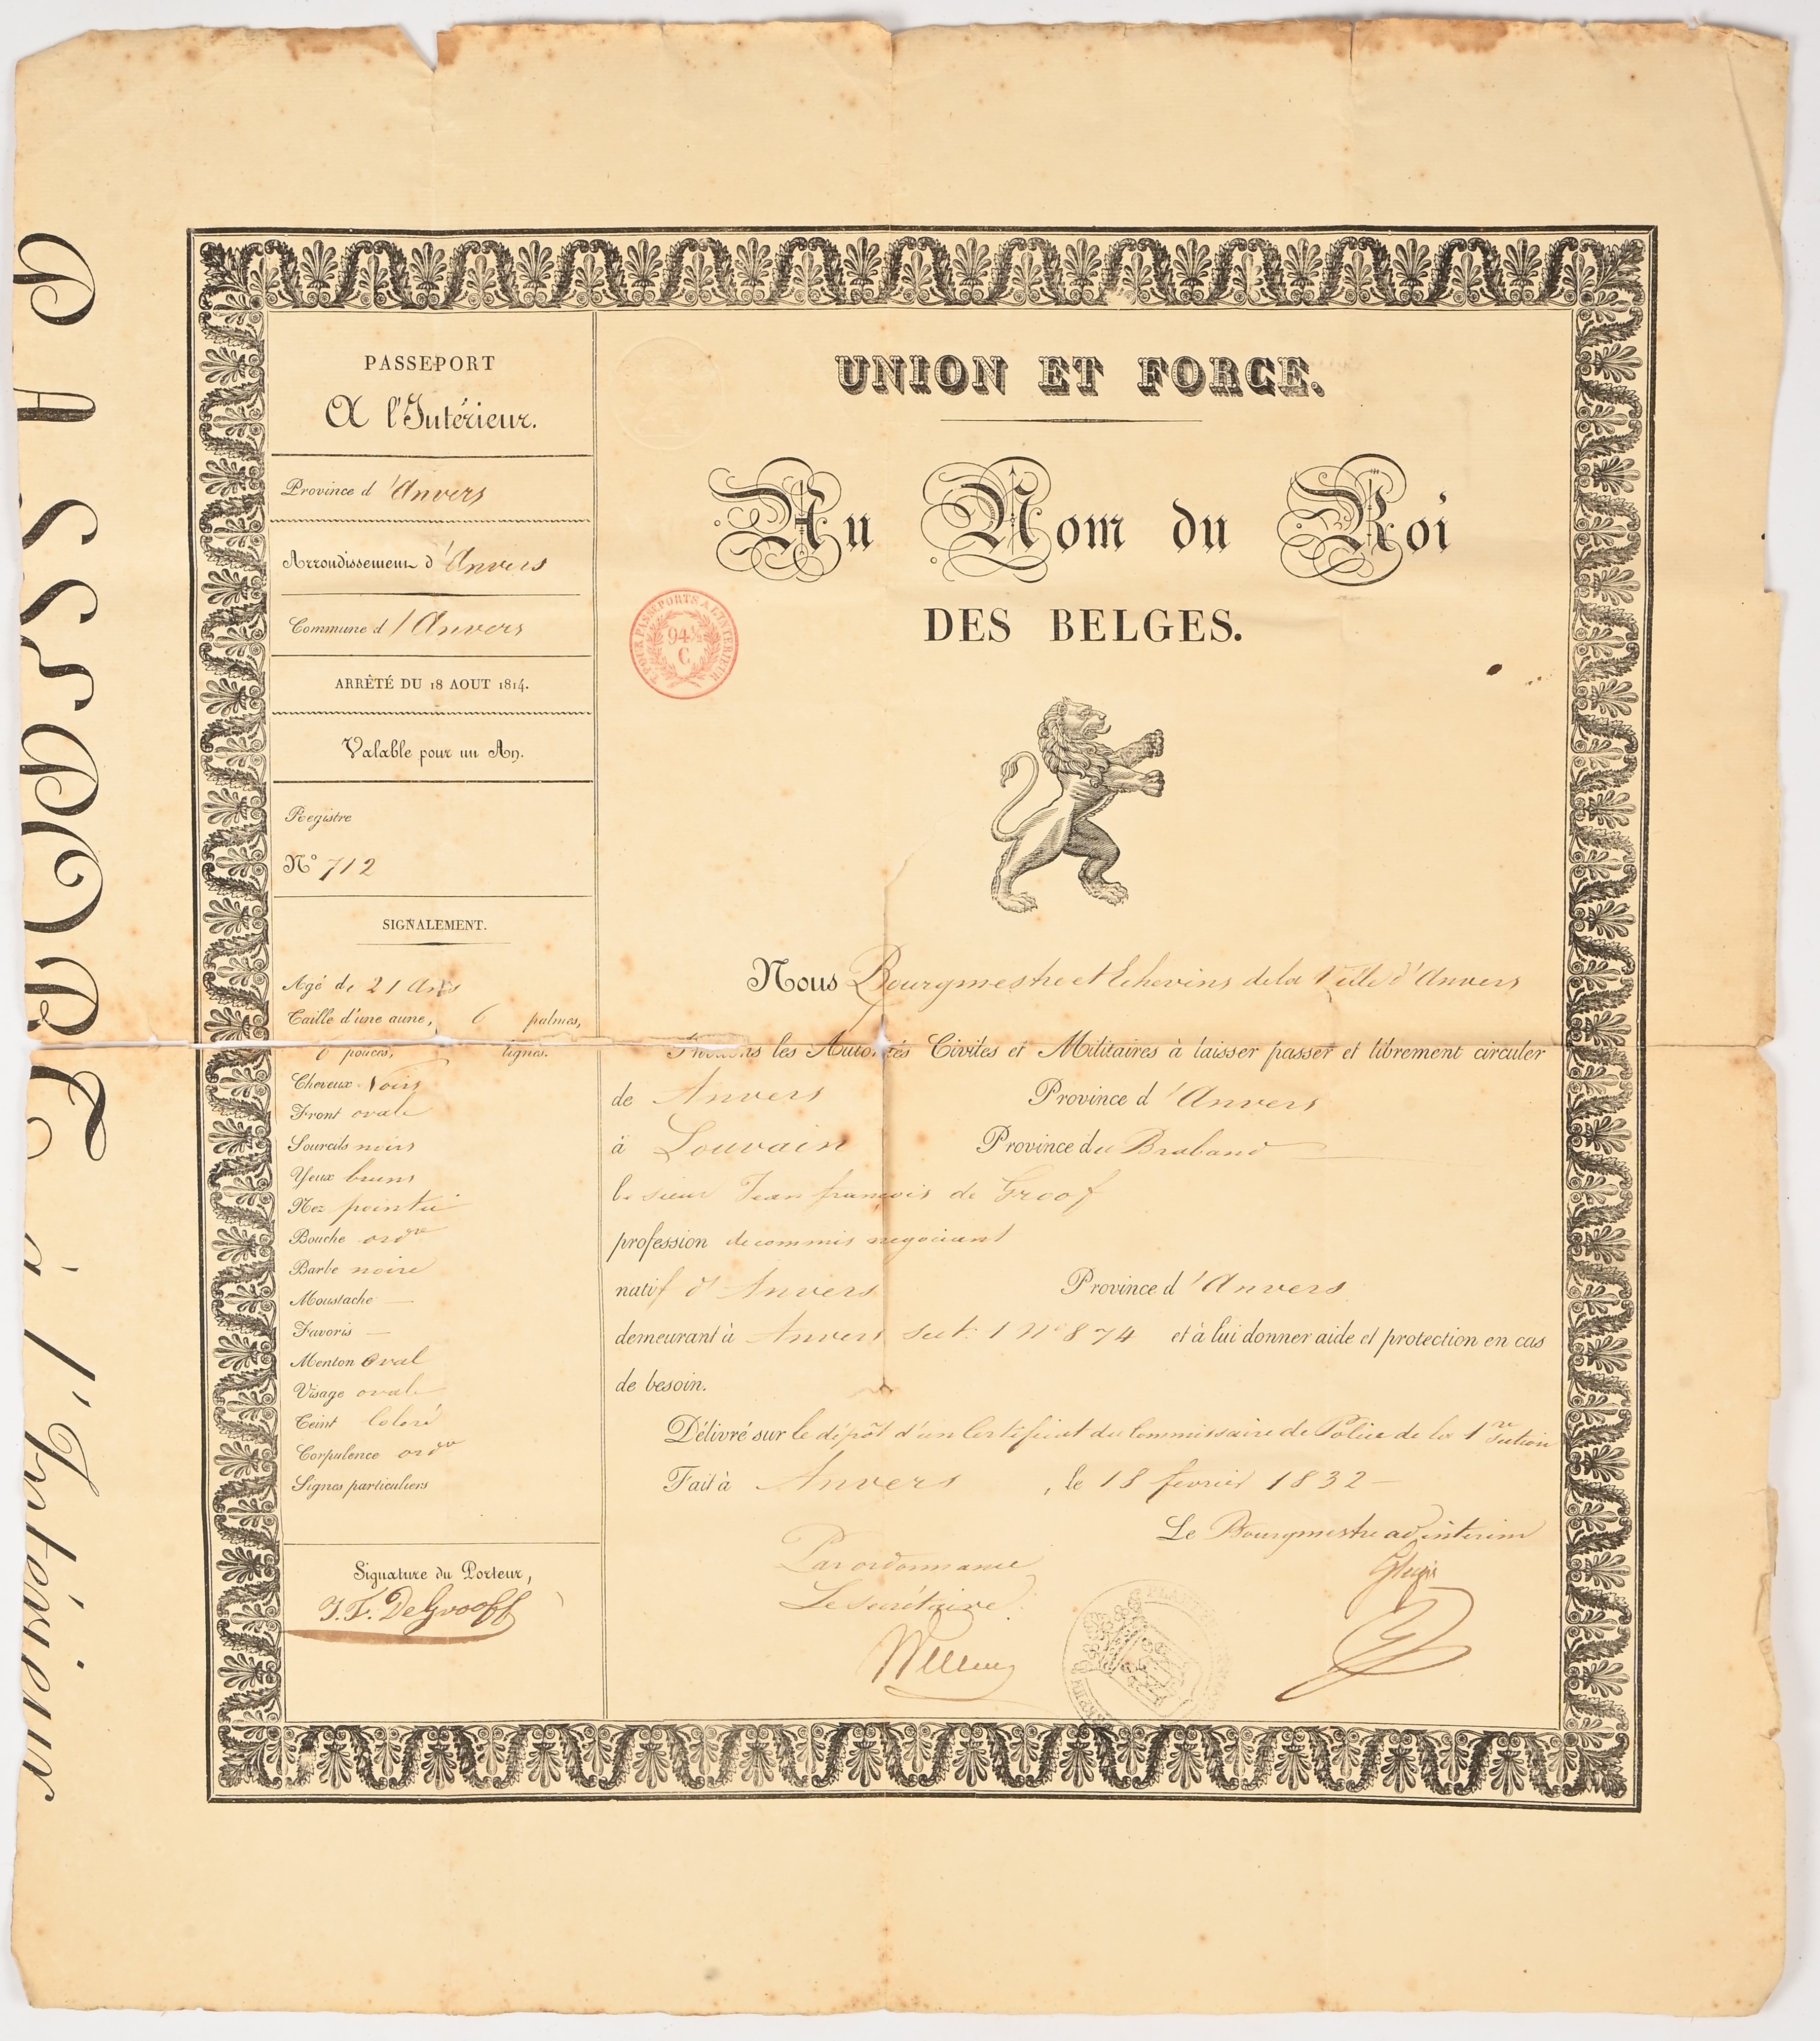 PASSEPORT
A l'Intérieur.
Province d'Anvers
Arrondissement d'Anvers
Commune d'Anvers
ARRÊTÉ DU 18 AOUT 1814.
Valable pour un An.
Registre
N° 712
SIGNALEMENT.
Agé de 21 Ans
Taille d'une aune, 6 palmes,
pouces, lignes.
Cheveux Noirs
Front ovale
Sourcils noirs
Yeux bruns
Nez pointu
Bouche ordre
Barbe noire
Moustache —
Favoris —
Menton oval
Visage ovale
Teint Coloré
Corpulence ordre
Signes particuliers
Signature du Porteur,
J. F. DeGrooff
UNION ET FORCE.
Au Nom du Roi
DES BELGES.
T. POUR PASSEPORTS A L'INTERIEUR
94½
C
Nous Bourgmestre et Echevins de la Ville d'Anvers
Invitons les Autorités Civiles et Militaires à laisser passer et librement circuler
de Anvers Province d'Anvers
à Louvain Province du Braband
le sieur Jean françois de Groof
profession de commis negociant
natif d'Anvers Province d'Anvers
demeurant à Anvers Sect: 1 N° 874 et à lui donner aide et protection en cas
de besoin.
Délivré sur le dépôt d'un Certificat du Commissaire de Police de la 1re Section
Fait à Anvers, le 18 fevrier 1832 —
Le Bourgmestre ad interim
Par ordonnance
Le Secrétaire
PASSEPORT à l'Intérieur